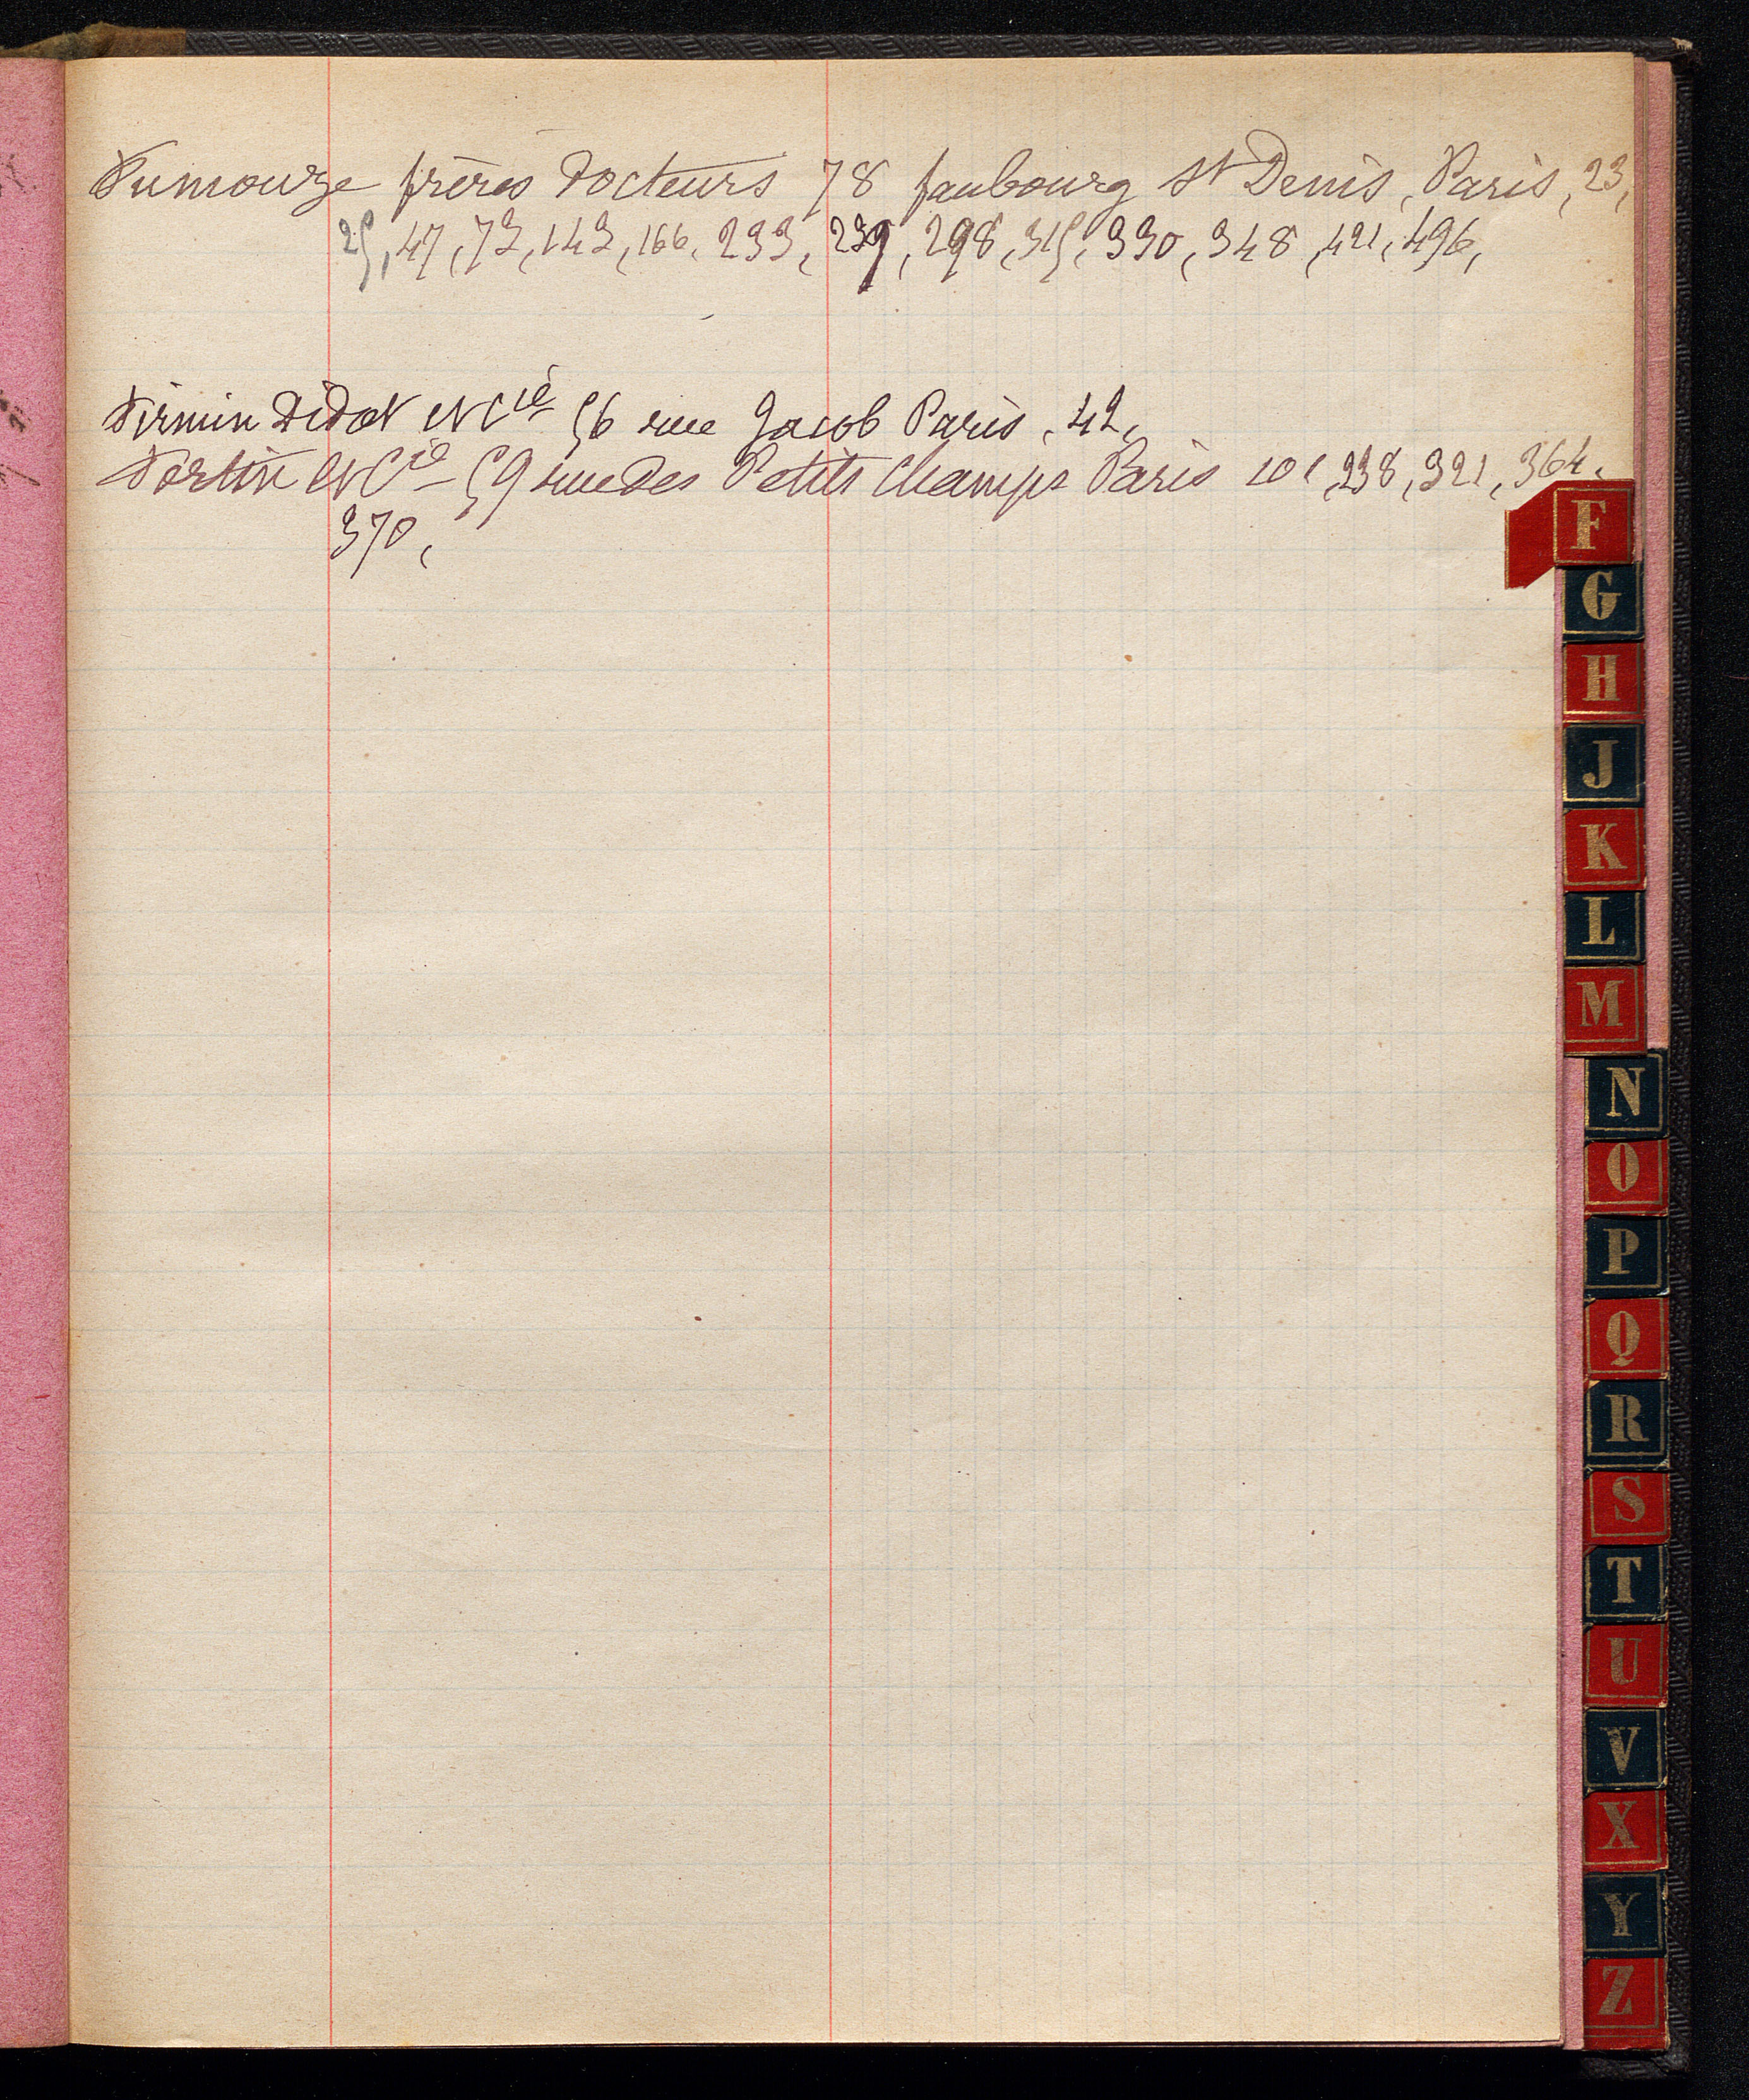 Fumouze frères Docteurs 78 faubourg St Denis, Paris, 23,
25, 47, 73, 143, 166, 233, 239, 298, 315, 330, 348, 421, 496,
Firmin Didot et Cie 56 rue Jacob Paris, 42,
Fortin et Cie 59 rue des Petits Champs Paris 101, 238, 321, 364,
370,
F
G
H
J
K
L
M
N
O
P
Q
R
S
T
U
V
X
Y
Z